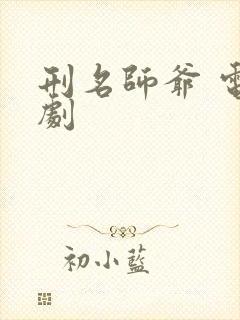 刑名師爺 電
劇
初小藍